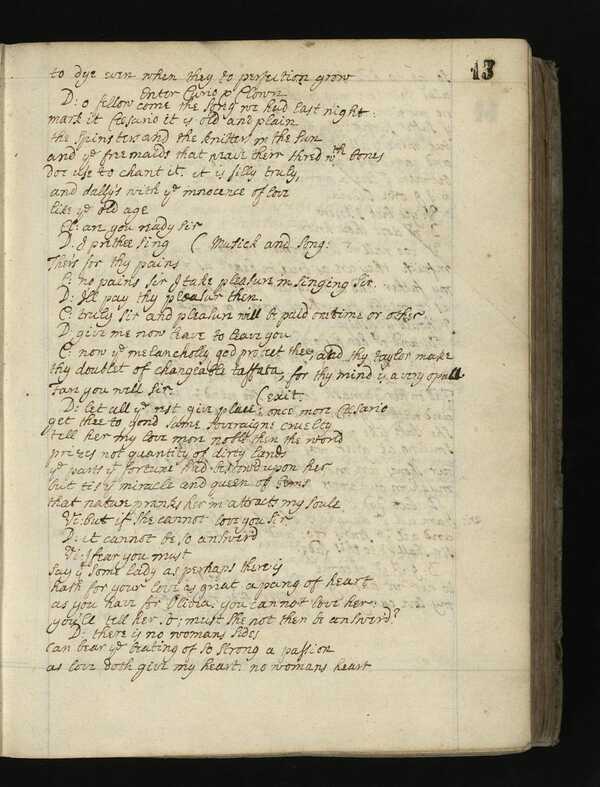 13
to dye even when they to perfection grow
Enter Curio & Clown
D: o fellow come the song we had last night:
mark it Cesario it is old and plain
the spinsters and the knitters in the sun
and ye free maids that weave their thred wth bones
doe use to chant it. it is silly truly,
and dally's with ye innocence of love
like ye old age
Cl: are you ready sir
D: I prethee sing ( Musick and Song:
Thers for thy pains
C: no pains sir I take pleasure in singing sir.
D: I'll pay thy pleasur then.
C: truly sir and pleasure will be paid one time or other
D: give me now leave to leave you
C: now ye melancholly god protect thee, and thy taylor make
thy doublet of changeable taffata, for thy mind is a very opall
Fare you well sir (exit.
D: let all ye rest give place: once more Cesario
get thee to yond same soveraigne cruelty
tell her my love more noble then the world
prizes not quantity of dirty lands
ye parts yt fortune had bestowd upon her
but tis yt miracle and queen of Gems
that nature pranks her in attracts my soule
Vi: but if she cannot love you sir
D: it cannot be so answerd
Vi: I fear you must
say yt some lady as perhaps there is
hath for your love as great a pang of heart
as you have for Olivia: you cannot love her:
you'll tell her so; must she not then be answerd?
D: there is no womans sides
can bear ye beating of so strong a passion
as love doth give my heart: no womans heart